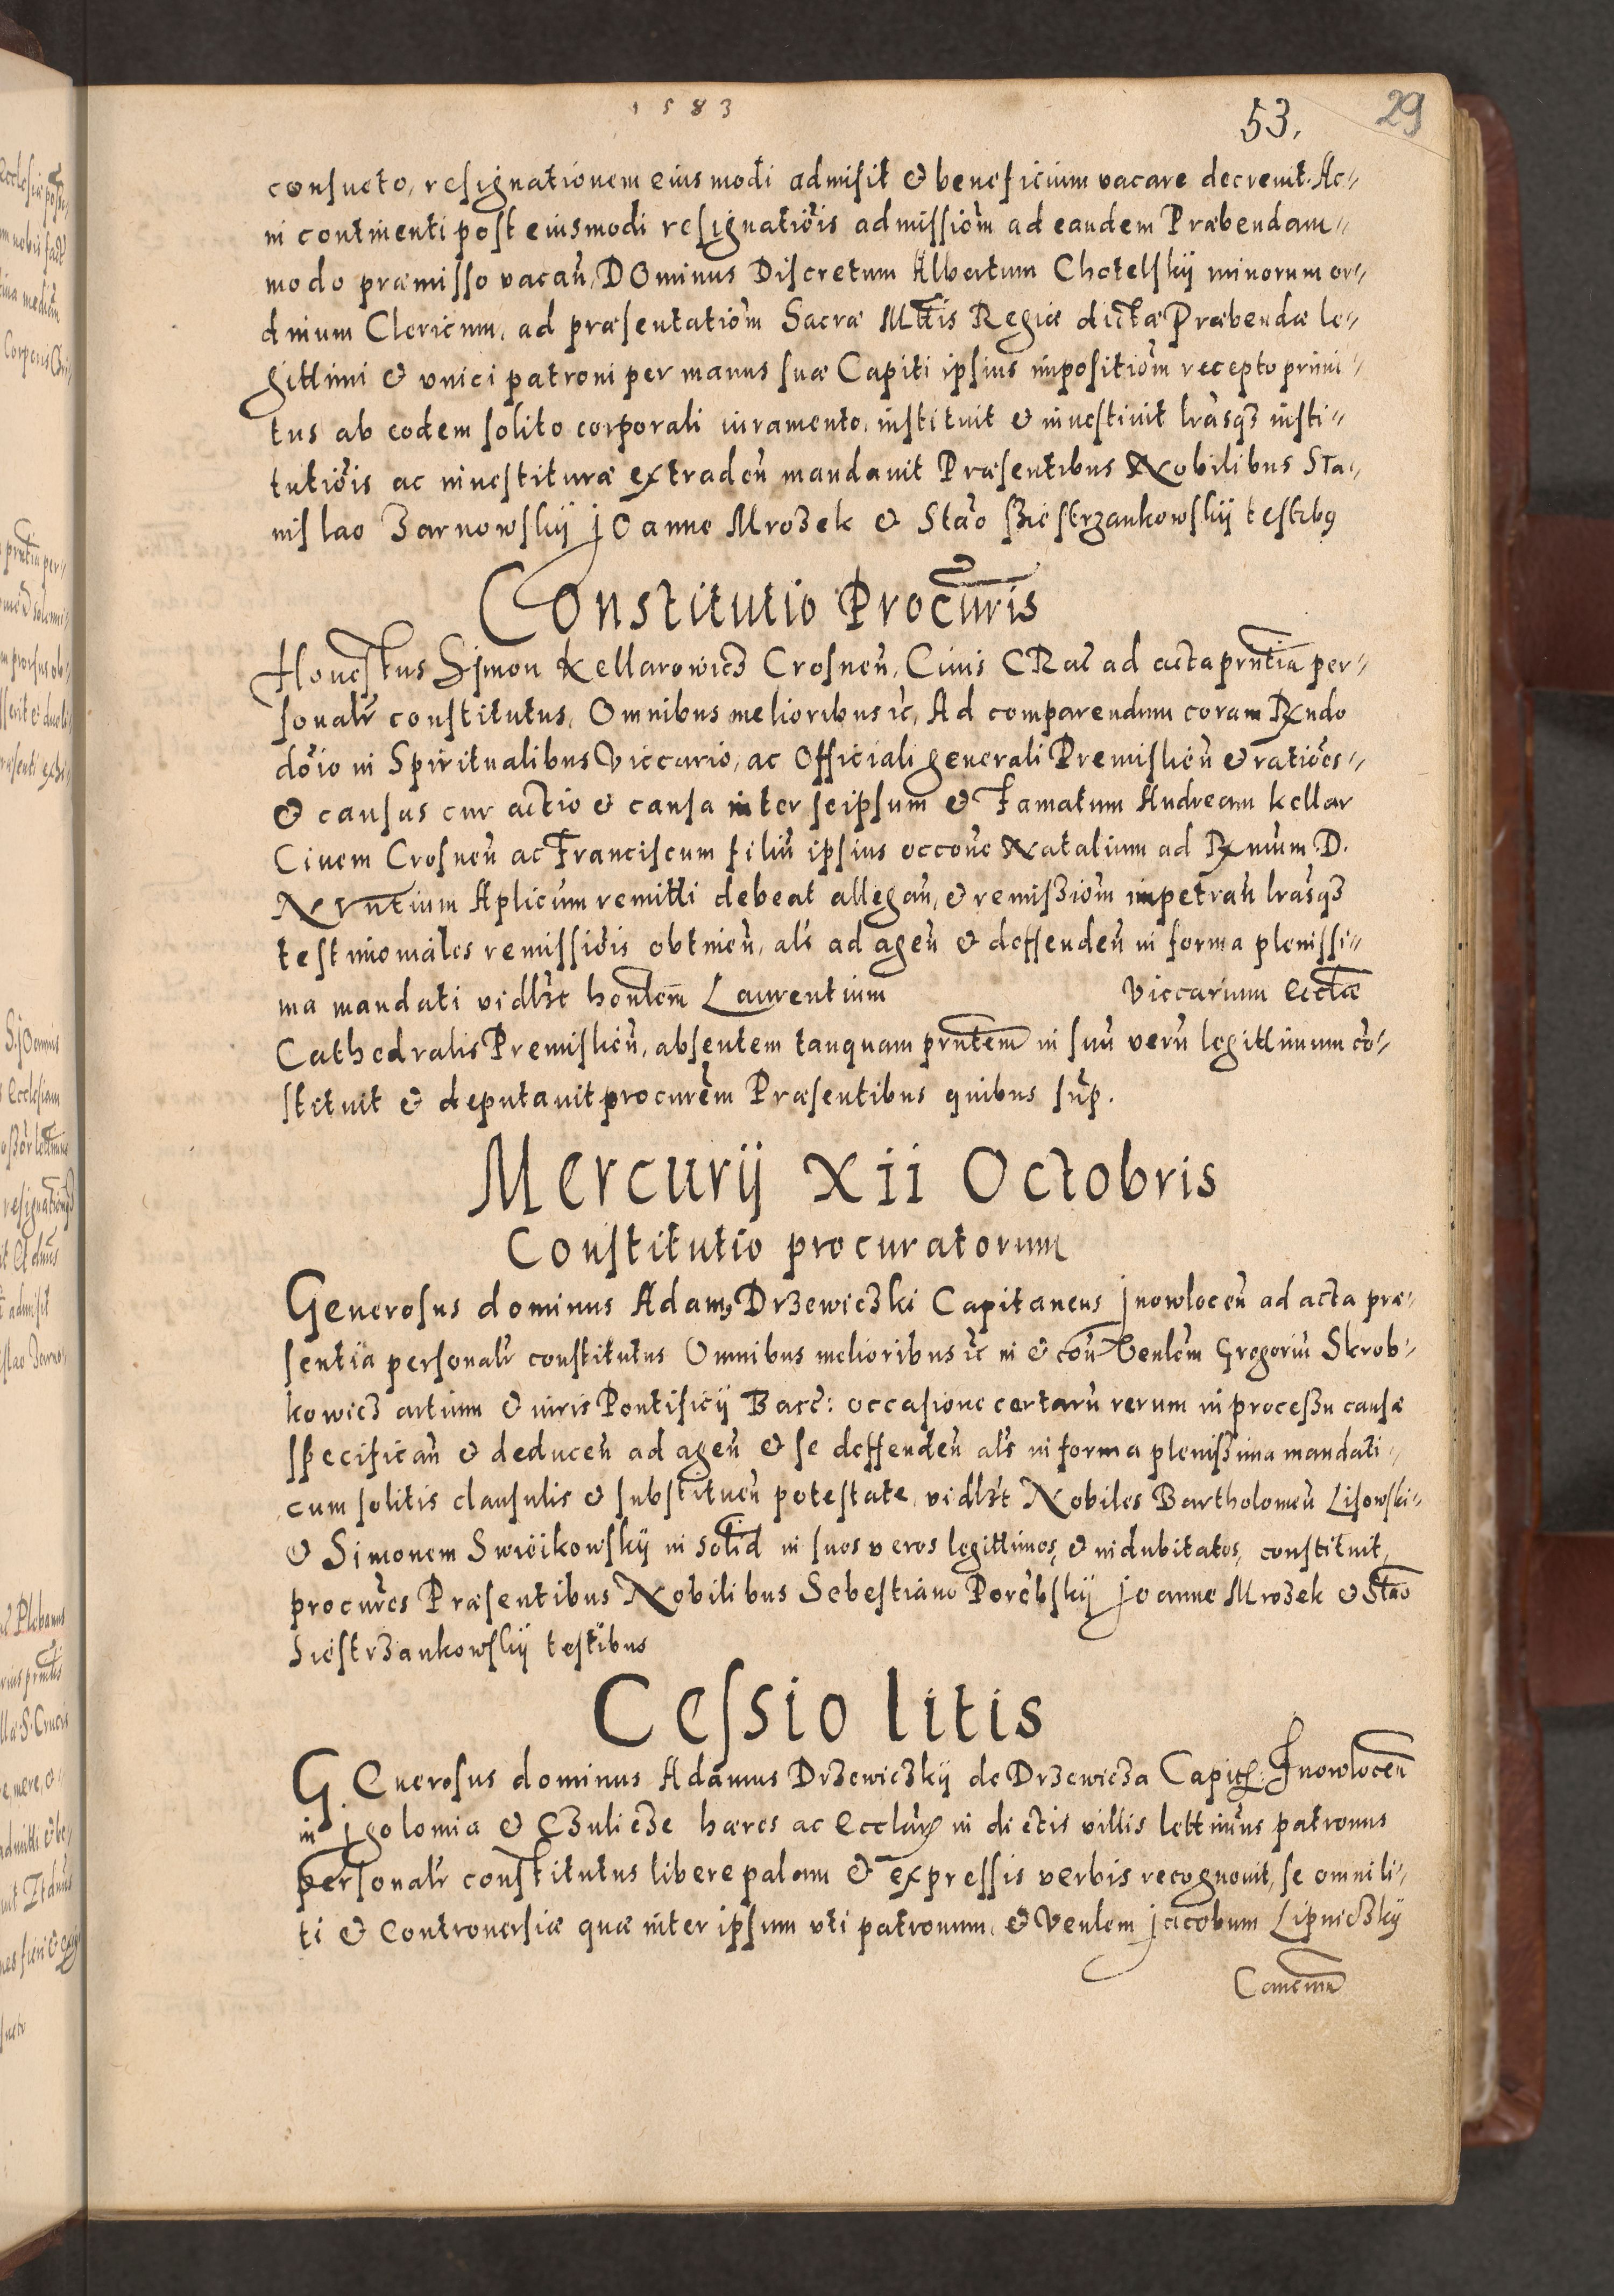 1583
53.
29
consueto, resignationem eiusmodi admisit & beneficium vacare decreuit. Ac=
in continenti post eiusmodi resignatiois admissiom ad eandem Præbendam=
modo præmisso vacan, DOminus Discretum Albertum Chotelskÿ minorum or=
dinum Clericum, ad præsentatiom Sacræ Mttis Regiæ dictæ Præbendæ le=
gittimi & vnici patroni per manus suæ Capiti ipsius impositiom recepto primi=
tus ab eodem solito corporali iuramento, instituit & inuestiuit lrasqȝ insti=
tutiois ac inuestituræ extraden mandauit Præsentibus Nobilibus Sta=
nislao Zarnowskÿ JOanne Mrozek & Stao Siestrzankowskÿ testibꝰ
COnstitutio Procuris
Honestus Simon Kellarowicz Crosnen, Ciuis CRac ad acta prntia per=
sonalr constitutus, Omnibus melioribus ic, Ad comparendum coram Rndo
doio in Spiritualibus Viccario, ac Officiali generali Premislien & ratioes=
& causas cur actio & causa inter seipsum & Famatum Andream kellar
Ciuem Crosnen ac Franciscum filiu ipsius occone Natalium ad Rmum D.
Nrutium Aplicum remitti debeat allegan, & remissiom impetran lrasqȝ
testimomales remissiois obtinen, als ad agen & deffenden in forma plenissi=
ma mandati vidlzt honlem Laurentium Viccarium Ecctæ
Cathedralis Premislien, absentem tanquam prntem in suu veru legittimum co=
stituit & deputauit procurem Præsentibus quibus sup.
Mercurÿ Xii Octobris
Constitutio procuratorum
Generosus dominus Adamꝰ Drzewiczki Capitaneus Jnowlocen ad acta præ=
sentia personalr constitutus Omnibus melioribus ic in & con Venlem Gregoriu Skrob=
kowicz artium & iuris Pontificÿ Bacc: occasione certaru rerum in processu causæ
specifican & deducen ad agen & se deffenden als in forma plenissima mandati=
cum solitis clausulis & substituen potestate, vidlzt Nobiles Bartholomeu Lisowski=
& Simonem Swieikowskÿ in solid in suos veros legittimos, & indubitatos, constituit,
procures Præsentibus Nobilibus Sebestiano Porebskÿ Joanne Mrozek & Stao
Siestrzankowskÿ testibus
Cessio litis
GEnerosus dominus Adamus Drzewiczkÿ de Drzewicza Capits: Jnowlocen
in Jgolomia & Czulicze hæres ac Ecclaꝝ in dictis villis lettimus patronus
personalr constitutus libere palam & expressis verbis recognouit, se omni li=
ti & Controuersiæ quæ inter ipsum vti patronum, & Venlem Jacobum Lipniczkÿ